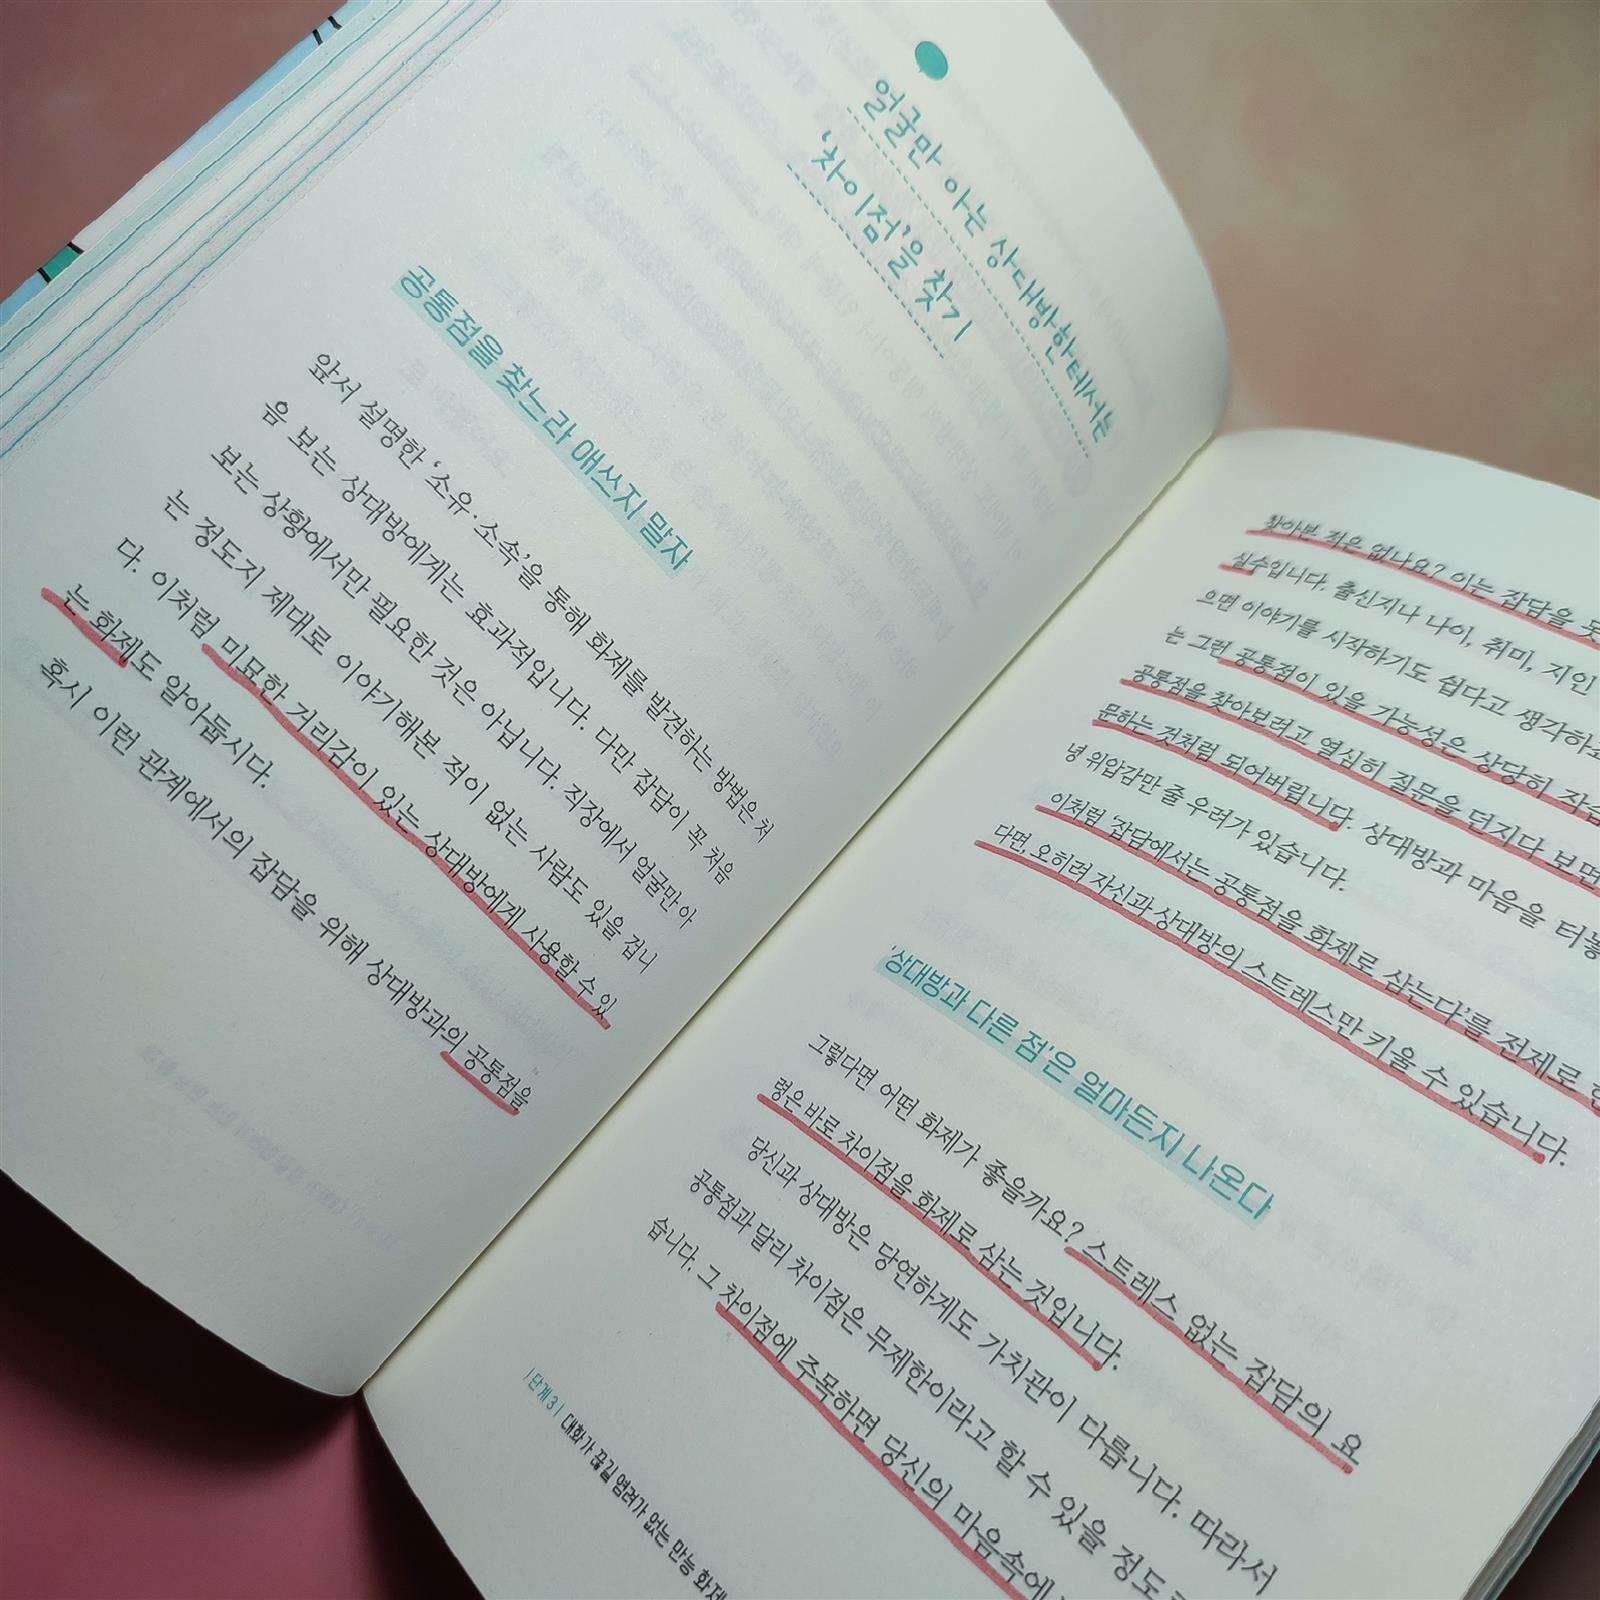 얼굴만 아는 상대방한테서는
‘차이점’을 찾기
공통점을 찾느라 애쓰지 말자
앞서 설명한 ‘소유·소속’을 통해 화제를 발견하는 방법은 처
음 보는 상대방에게는 효과적입니다. 다만 잡담이 꼭 처음
보는 상황에서만 필요한 것은 아닙니다. 직장에서 얼굴만 아
는 정도지 제대로 이야기해본 적이 없는 사람도 있을 겁니
다. 이처럼 미묘한 거리감이 있는 상대방에게 사용할 수 있
는 화제도 알아둡시다.
혹시 이런 관계에서의 잡담을 위해 상대방과의 공통점을
찾아본 적은 없나요? 이는 잡담을 못
실수입니다. 출신지나 나이, 취미, 지인
으면 이야기를 시작하기도 쉽다고 생각하죠
는 그런 공통점이 있을 가능성은 상당히 작습
공통점을 찾아보려고 열심히 질문을 던지다 보면
문하는 것처럼 되어버립니다. 상대방과 마음을 터놓
녕 위압감만 줄 우려가 있습니다.
이처럼 ‘잡담에서는 공통점을 화제로 삼는다’를 전제로 한
다면, 오히려 자신과 상대방의 스트레스만 키울 수 있습니다.
‘상대방과 다른 점’은 얼마든지 나온다
그렇다면 어떤 화제가 좋을까요? 스트레스 없는 잡담의 요
령은 바로 차이점을 화제로 삼는 것입니다.
당신과 상대방은 당연하게도 가치관이 다릅니다. 따라서
공통점과 달리 차이점은 무제한이라고 할 수 있을 정도
습니다. 그 차이점에 주목하면 당신의 마음속에
| 단계 3 | 대화가 끊길 염려가 없는 만능 화제